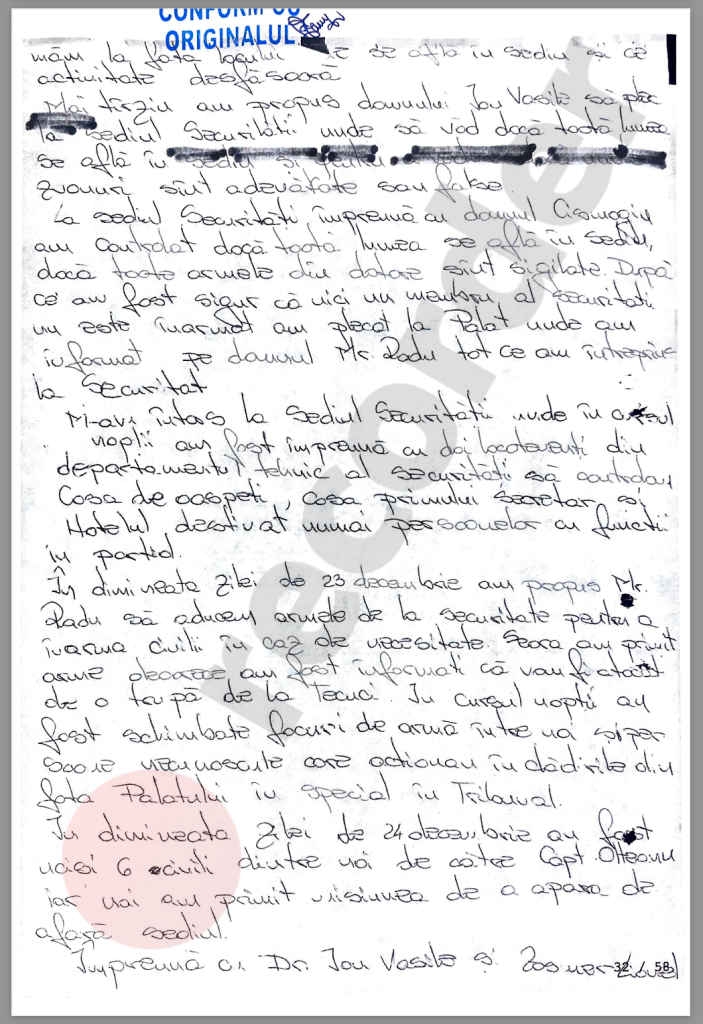 CONFORM CU
ORIGINALUL
măm la fața locului se află în sediu și ce
activitate desfășoară
Mai tîrziu am propus domnului Ion Vasile să
la sediul Securității unde să văd dacă toată lumea
se află în sediu și
zvonuri sînt adevărate sau false.
La sediul Securității împreună cu domnul Cismagiu
am controlat dacă toată lumea se află în sediu,
dacă toate armele din dotare sînt sigilate. După
ce am fost sigur că nici un membru al securității
nu este înarmat am plecat la Palat unde am
informat pe domnul Mr. Radu tot ce am întreprins
la Securitat
M-am întors la sediul Securității unde în cursul
nopții am fost împreună cu doi locotenenți din
departamentul tehnic al securității să controlăm
Casa de oaspeți, casa primului secretar și
Hotelul destinat numai persoanelor cu funcții
în partid.
În dimineața zilei de 23 decembrie am propus Mr.
Radu să aducem armele de la securitate pentru a
înarma civilii în caz de necesitate. Seara am primit
arme deoarece am fost informați că vom fi atacați
de o trupă de la Tecuci. În cursul nopții au
fost schimbate focuri de armă între noi și per
soane necunoscute care acționau în clădirile din
fața Palatului în special în Tribunal.
În dimineața zilei de 24 decembrie au fost
uciși 6 civili dintre noi de către Capt. Olteanu
iar noi am primit misiunea de a apăra de
afară sediul.
Împreună cu Dr. Ion Vasile și
32 / 58
recorder